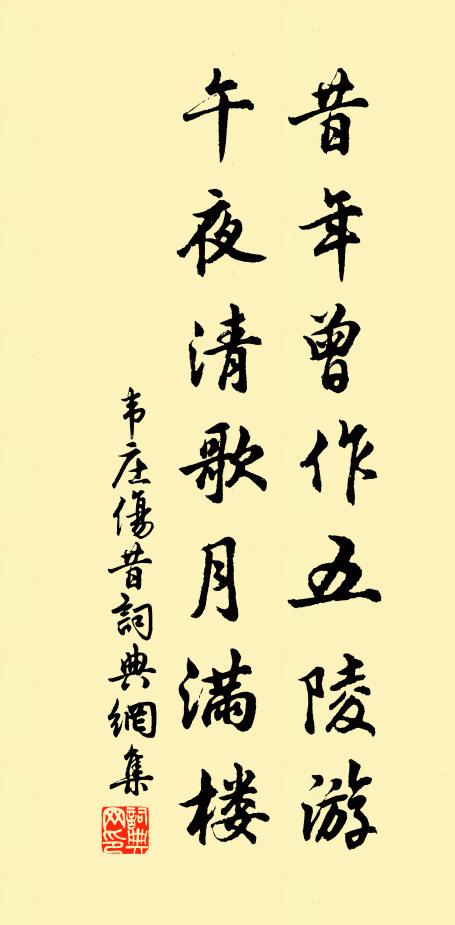 昔年曾作五陵游
午夜清歌月满楼
韦庄傷昔詞典網集
詞典网印